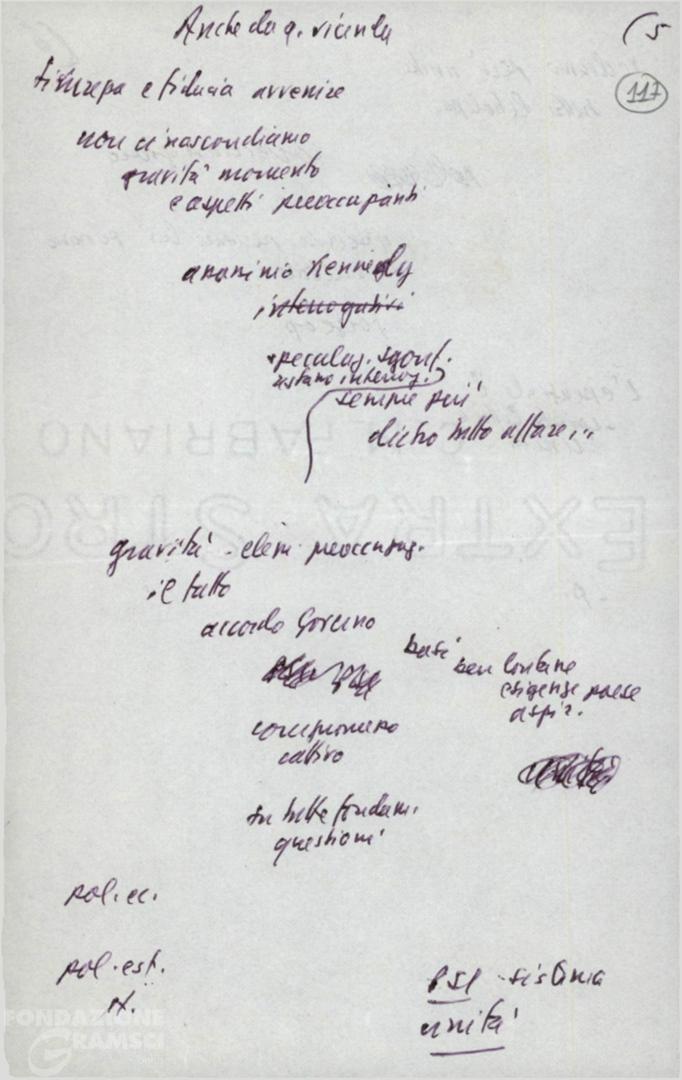 Anche da q. vicenda
(5
117
sicurezza e fiducia avvenire
non ci nascondiamo
gravità momento
e aspetti preoccupanti
assassinio Kennedy
interrogativi
speculaz. sgonf.
restano interrog.
sempre più
dietro tutto affare...
gravità - elem. preoccupaz.
il fatto
accordo Governo
basi ben lontane
esigenze paese
aspir.
compromesso
cattivo
su tutte fondam.
questioni
pol. ec.
pol. est.
PSI - sistema
unità
EXTRA STRO
FABRIANO
FONDAZIONE
GRAMSCI